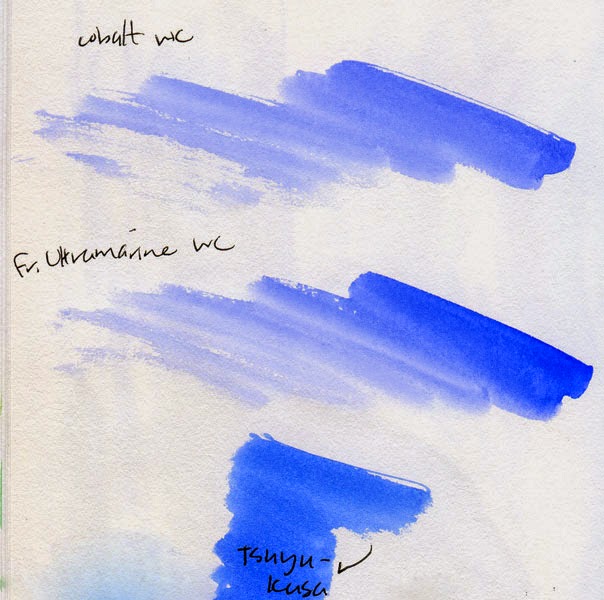 cobalt wc
Fr. Ultramarine wc
Tsuyu-
kusa